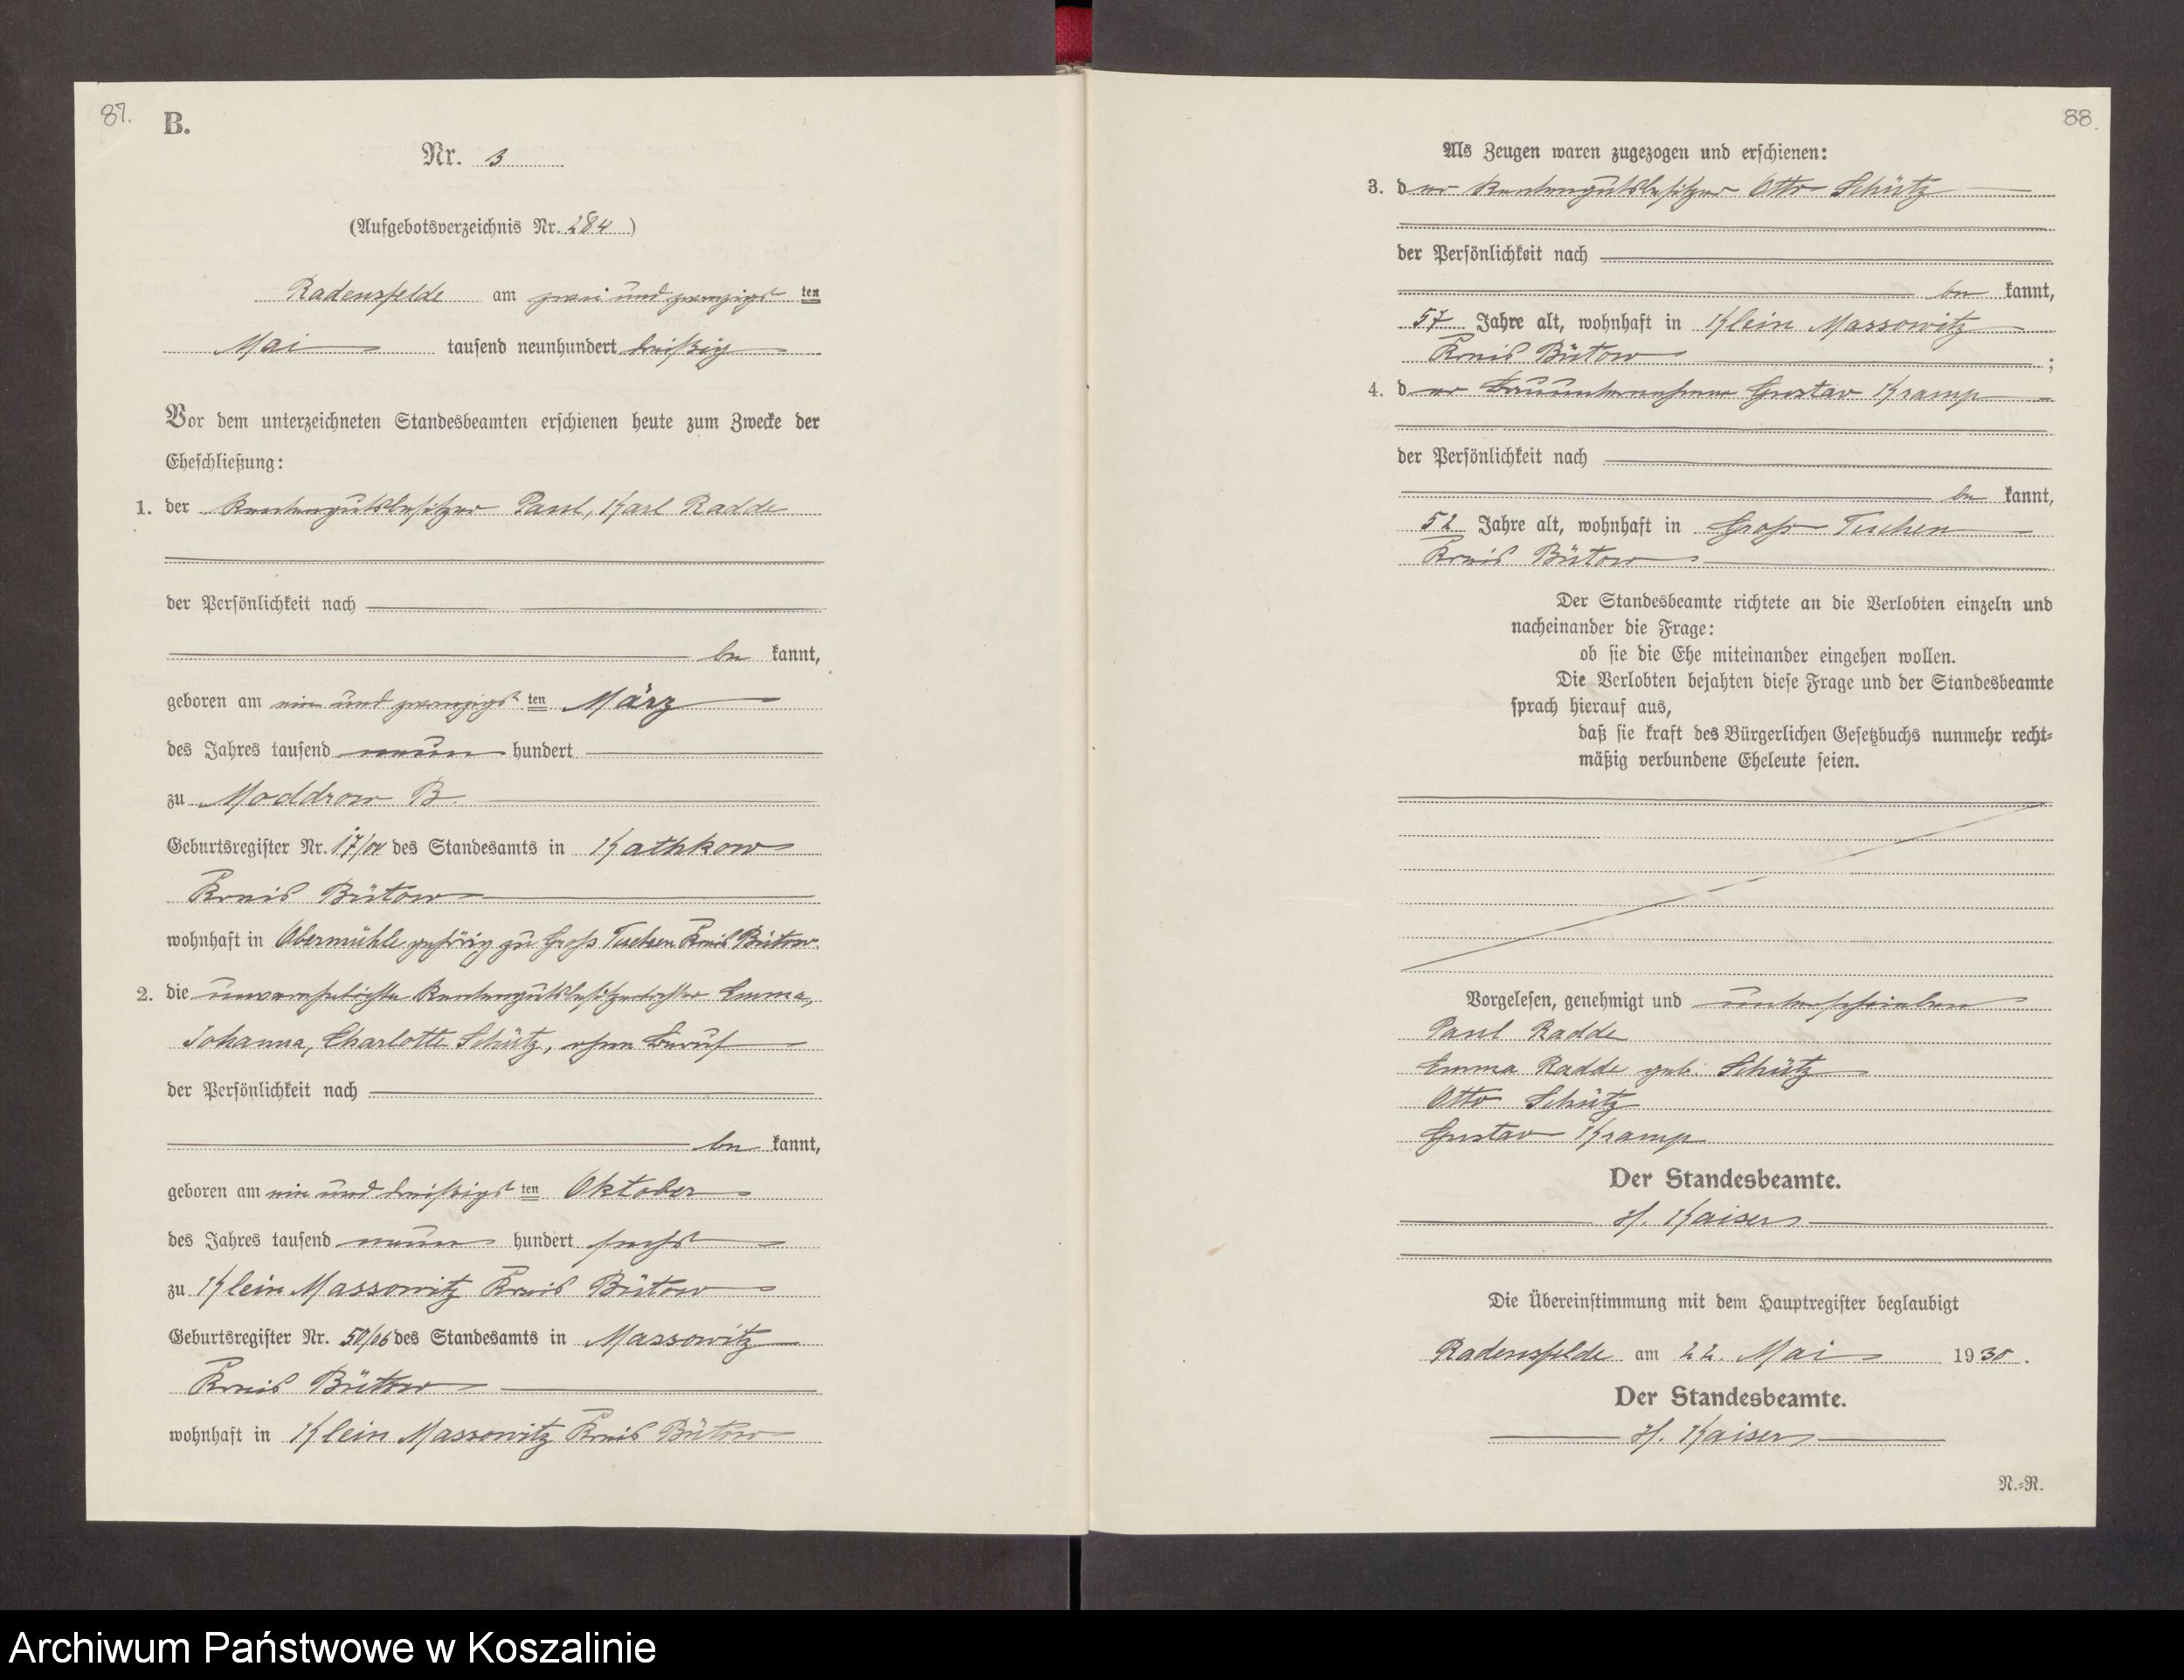 87.
B.
Nr. 3
(Aufgebotsverzeichnis Nr. 284)
Radensfelde am zwei und zwanzigsten
Mai tausend neunhundert dreißig
Vor dem unterzeichneten Standesbeamten erschienen heute zum Zwecke der
Eheschließung:
1. der Rentengutsbesitzer Paul, Karl Radde
der Persönlichkeit nach
be kannt,
geboren am ein und zwanzigsten März
des Jahres tausend neun hundert
zu Moddrow B.
Geburtsregister Nr. 17/00 des Standesamts in Kathkow
Kreis Bütow
wohnhaft in Obermühle gehörig zu Groß Tuchen Kreis Bütow.
2. die unverehelichte Rentengutsbesitzertochter Emma,
Johanna, Charlotte Schütz, ohne Beruf
der Persönlichkeit nach
be kannt,
geboren am ein und dreißigsten Oktober
des Jahres tausend neun hundert sechs
zu Klein Massowitz Kreis Bütow
Geburtsregister Nr. 50/06 des Standesamts in Massowitz
Kreis Bütow
wohnhaft in Klein Massowitz Kreis Bütow
88.
Als Zeugen waren zugezogen und erschienen:
3. der Rentengutsbesitzer Otto Schütz
der Persönlichkeit nach
be kannt,
57 Jahre alt, wohnhaft in Klein Massowitz
Kreis Bütow ;
4. der Bauunternehmer Gustav Kramp
der Persönlichkeit nach
be kannt,
52 Jahre alt, wohnhaft in Groß Tuchen
Kreis Bütow
Der Standesbeamte richtete an die Verlobten einzeln und
nacheinander die Frage:
ob sie die Ehe miteinander eingehen wollen.
Die Verlobten bejahten diese Frage und der Standesbeamte
sprach hierauf aus,
daß sie kraft des Bürgerlichen Gesetzbuchs nunmehr recht-
mäßig verbundene Eheleute seien.
Vorgelesen, genehmigt und unterschrieben
Paul Radde
Emma Radde geb. Schütz
Otto Schütz
Gustav Kramp
Der Standesbeamte.
H. Kaiser
Die Übereinstimmung mit dem Hauptregister beglaubigt
Radensfelde am 22. Mai 1930.
Der Standesbeamte.
H. Kaiser
N.-R.
Archiwum Państwowe w Koszalinie